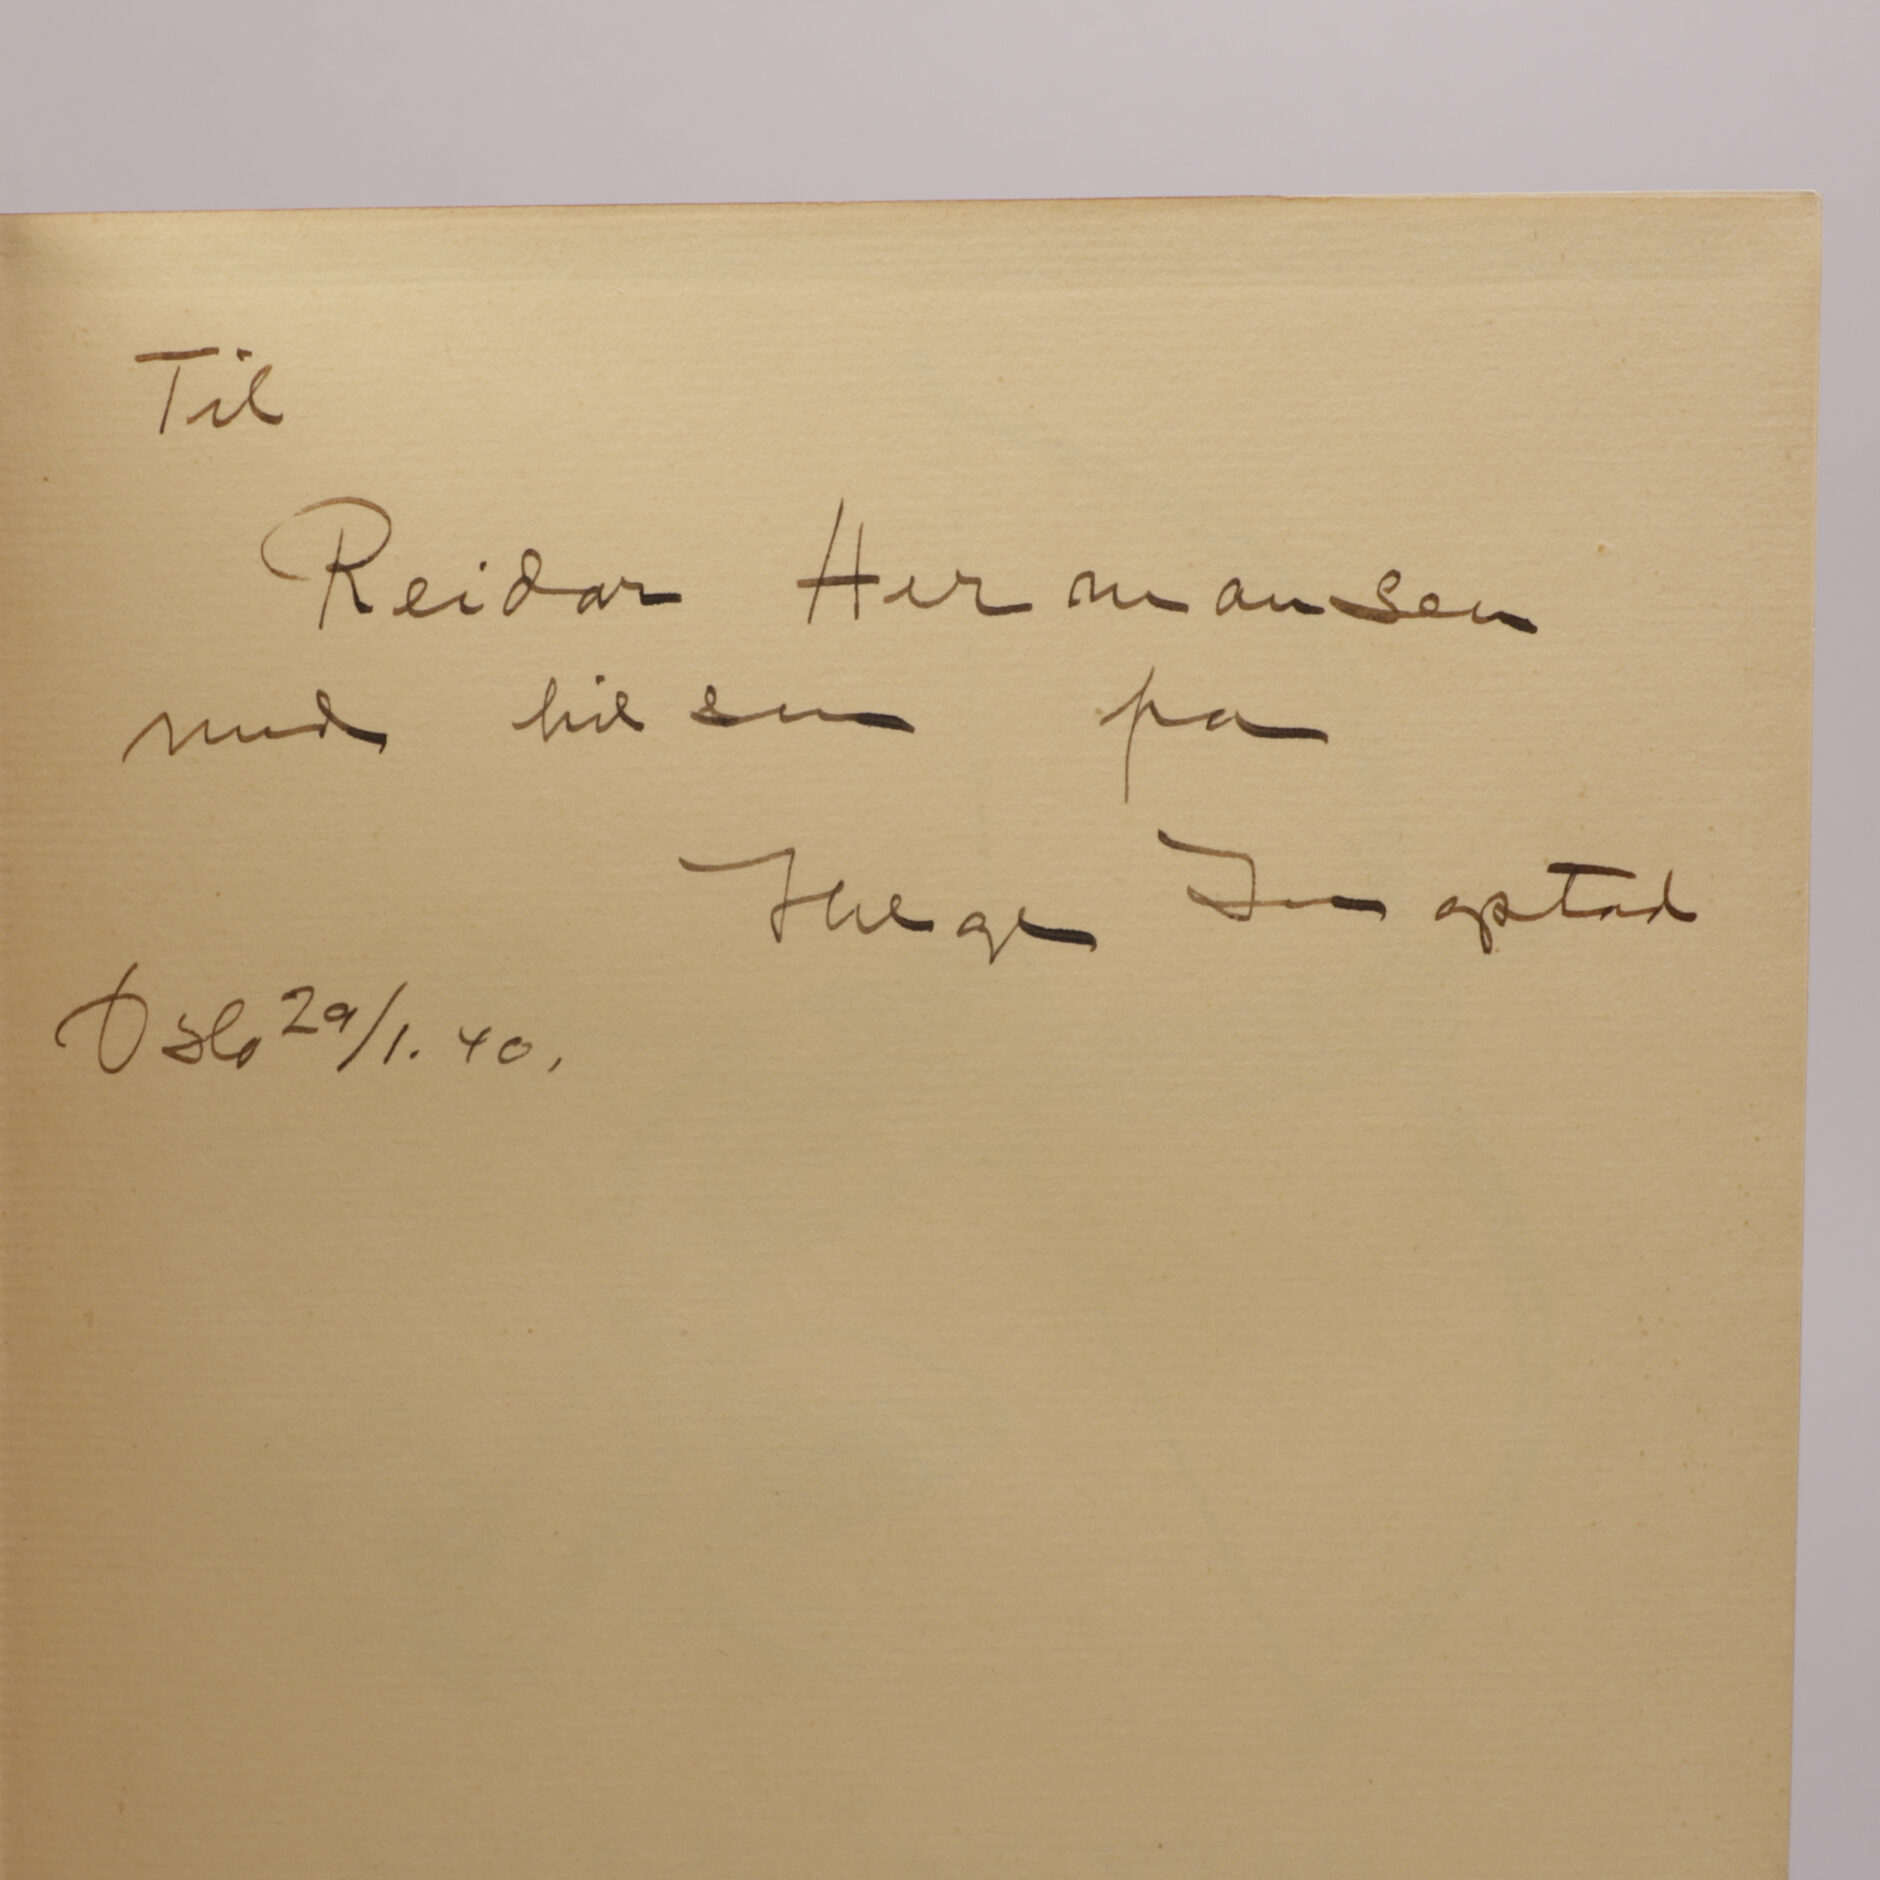 Til
Reidar Hermansen
med hilsen fra
Helge Ingstad
Oslo 29/1. 40.